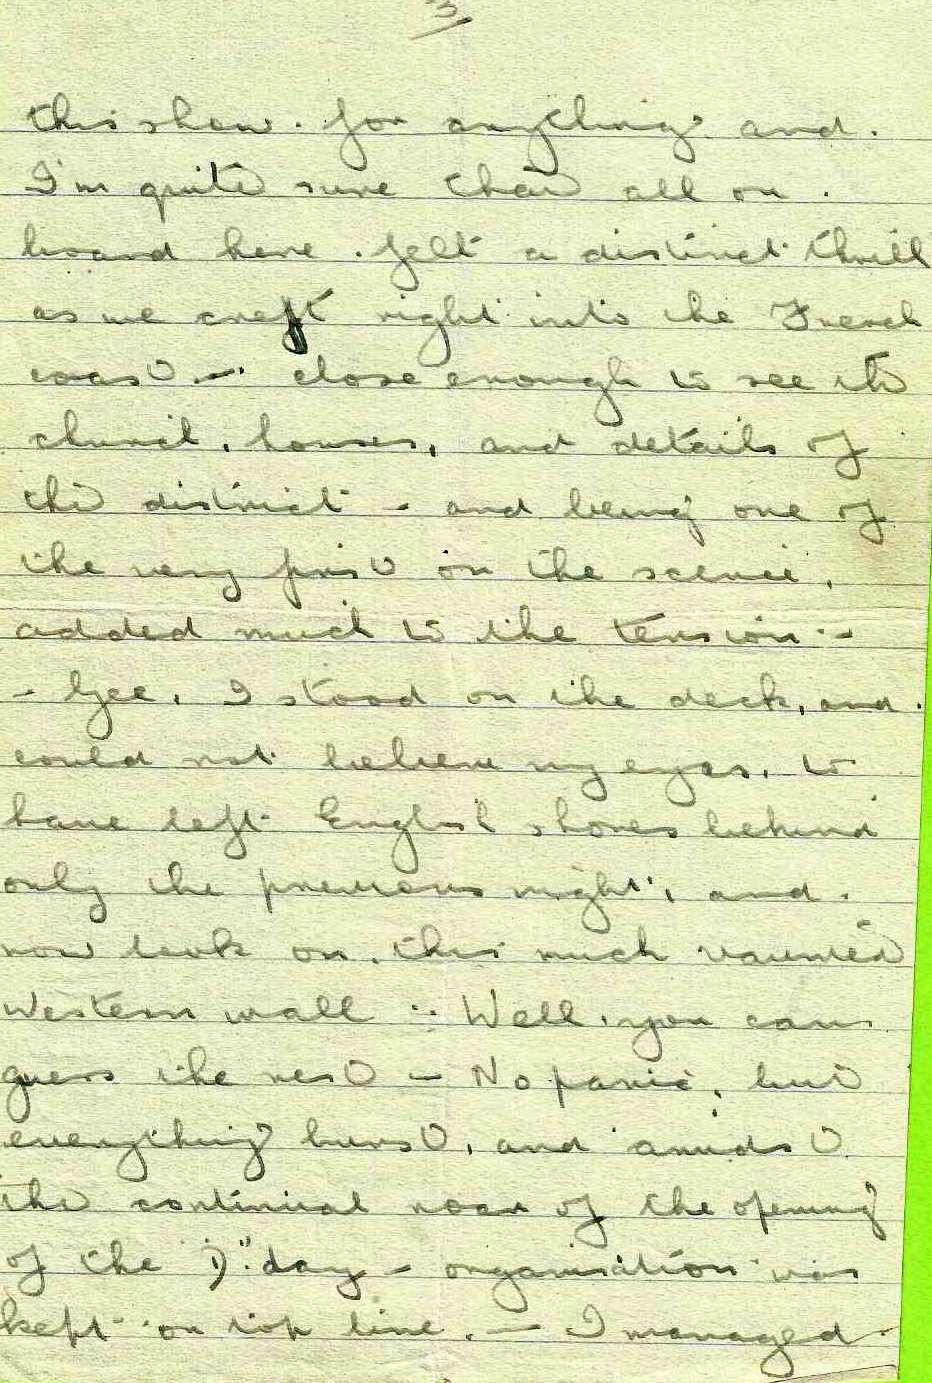 3
this show. for anything and.
I'm quite sure that all on.
board here. felt a distinct thrill
as we crept right into the French
coast - close enough to see the
church, houses, and details of
the district - and being one of
the very first on the scene,
added much to the tension -
- Gee, I stood on the deck, and.
could not believe my eyes, to
have left English shores behind
only the previous night, and.
now look on. this much vaunted
Western wall :- Well. you can
guess the rest - No panic, but
everything burst, and amidst
the continual roar of the opening
of the "D" day - organisation was
kept on top line. - I managed